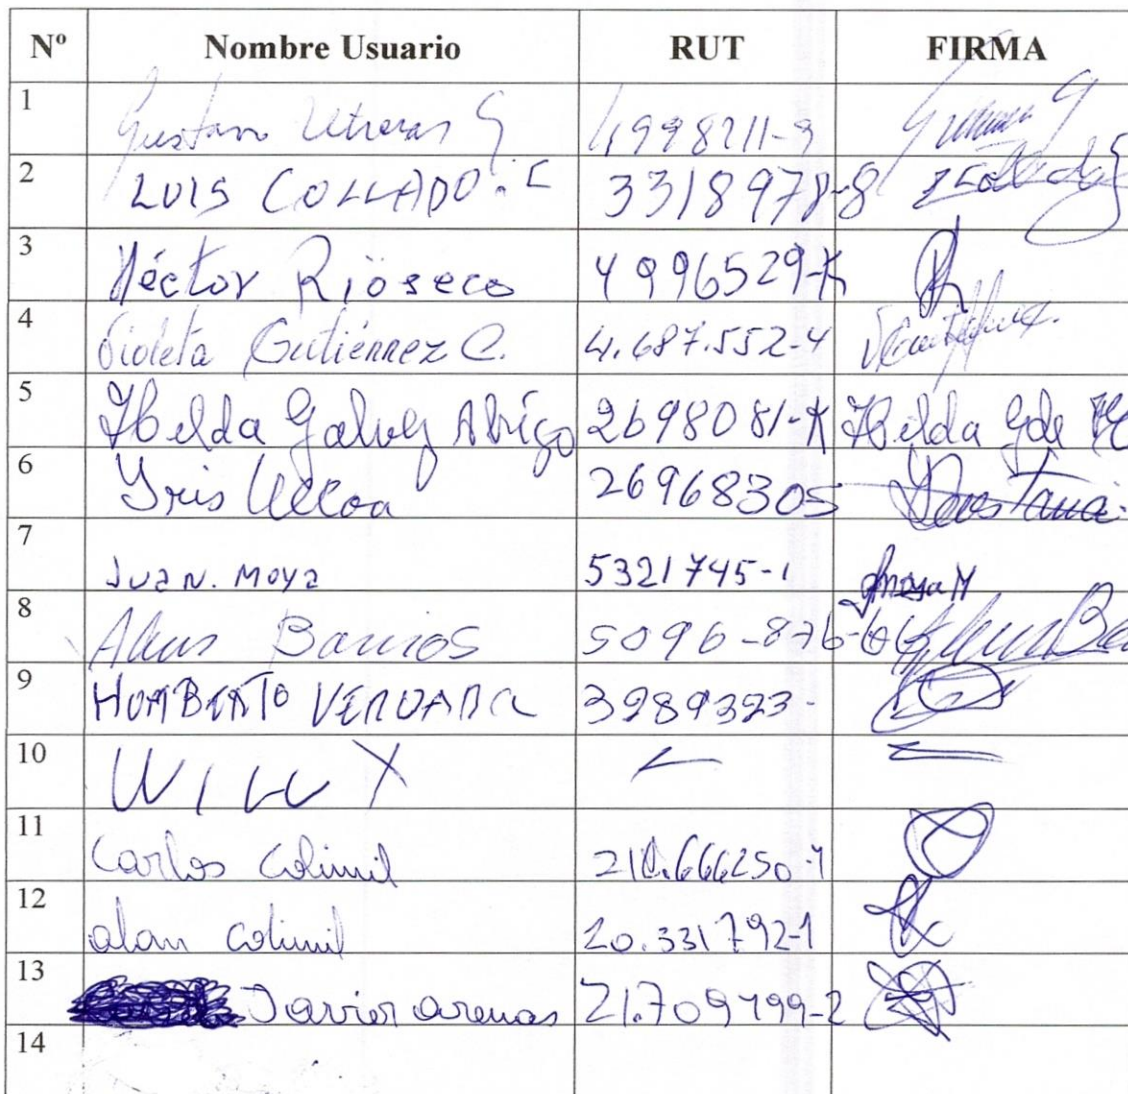 Nº Nombre Usuario RUT FIRMA
1 Gustavo Utreras G 4998211-9
2 LUIS COLLADO. C 3318978-8
3 Héctor Rioseco 4996529-K
4 Violeta Gutiérrez C. 4.687.552-4
5 Hilda Galvez Abrigo 2698081-K Hilda G de
6 Iris Ulloa 26968305
7 Juan. Moya 5321745-1 JMoya M
8 Barrios 5096-876-
9 HUMBERTO VERGARA 3989323-
10
11 Carlos Colimil
12 alan colimil 20.331792-1
13 Javier arenas 21.709499-2
14